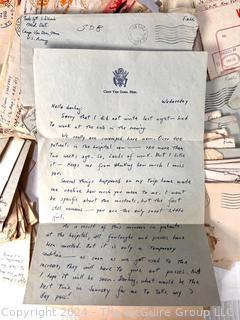 Free
SDB
U.S. Army
CAMP VAN DORN, MISS.
Wednesday
Hello darling
Sorry that I did not write last night - had
to work at the in the evening.
We really are swamped here now. Over 900
patients in the hospital now - 300 more than
two weeks ago. So, loads of work. But I like
it - keeps me from thinking how much I miss
you.
Several things happened on my trip home made
me realize how much you mean to me. I won't
be specific about the incidents, but the fact
still remains - you are the only sweet little
girl.
As a result of this increase in patients
at the hospital, all furloughs and passes have
been cancelled. But it is only a temporary
- as soon as we get used to the
increase they will have to give out passes. But
I hope it will be soon darling. What would be the
best time in January for me to take my 3
day pass?
© Copyright 2024 - The McGuire Group LLC